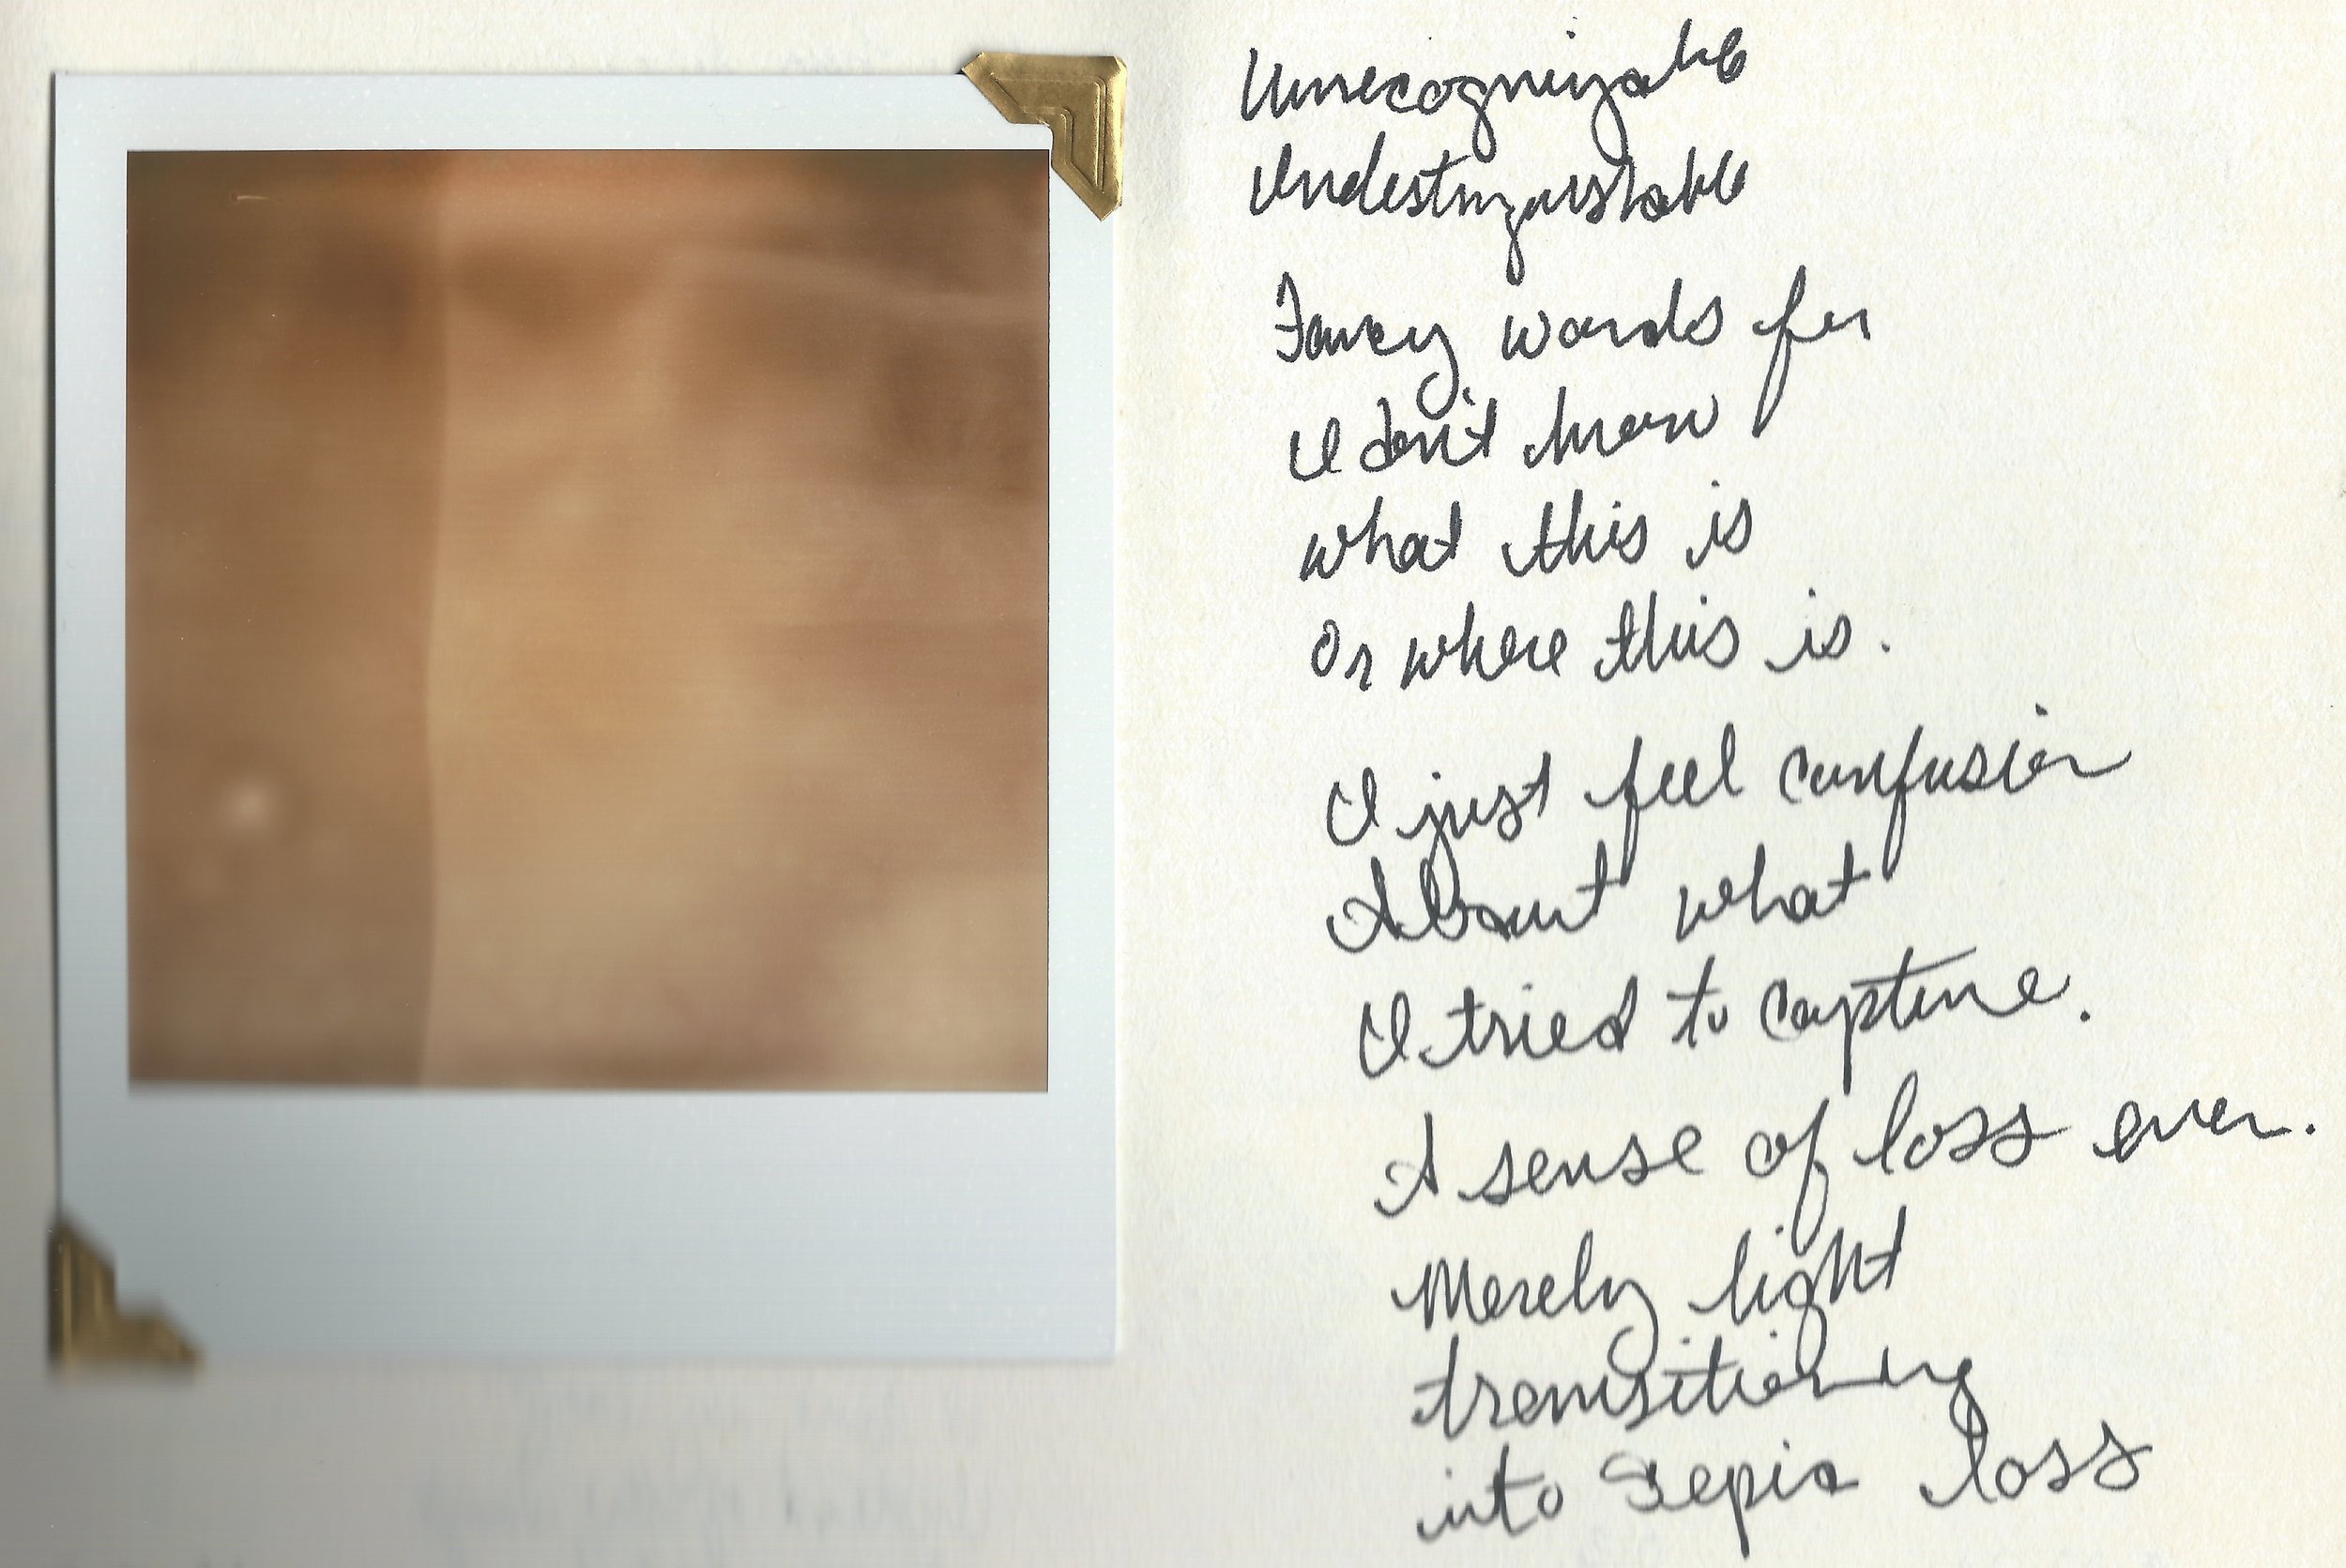 Unrecognizable
Indestinguishable
Fancy words for
I don't know
what this is
Or where this is.
I just feel confusion
About what
I tried to capture.
A sense of loss even.
Merely light
transitioning
into Sepia loss